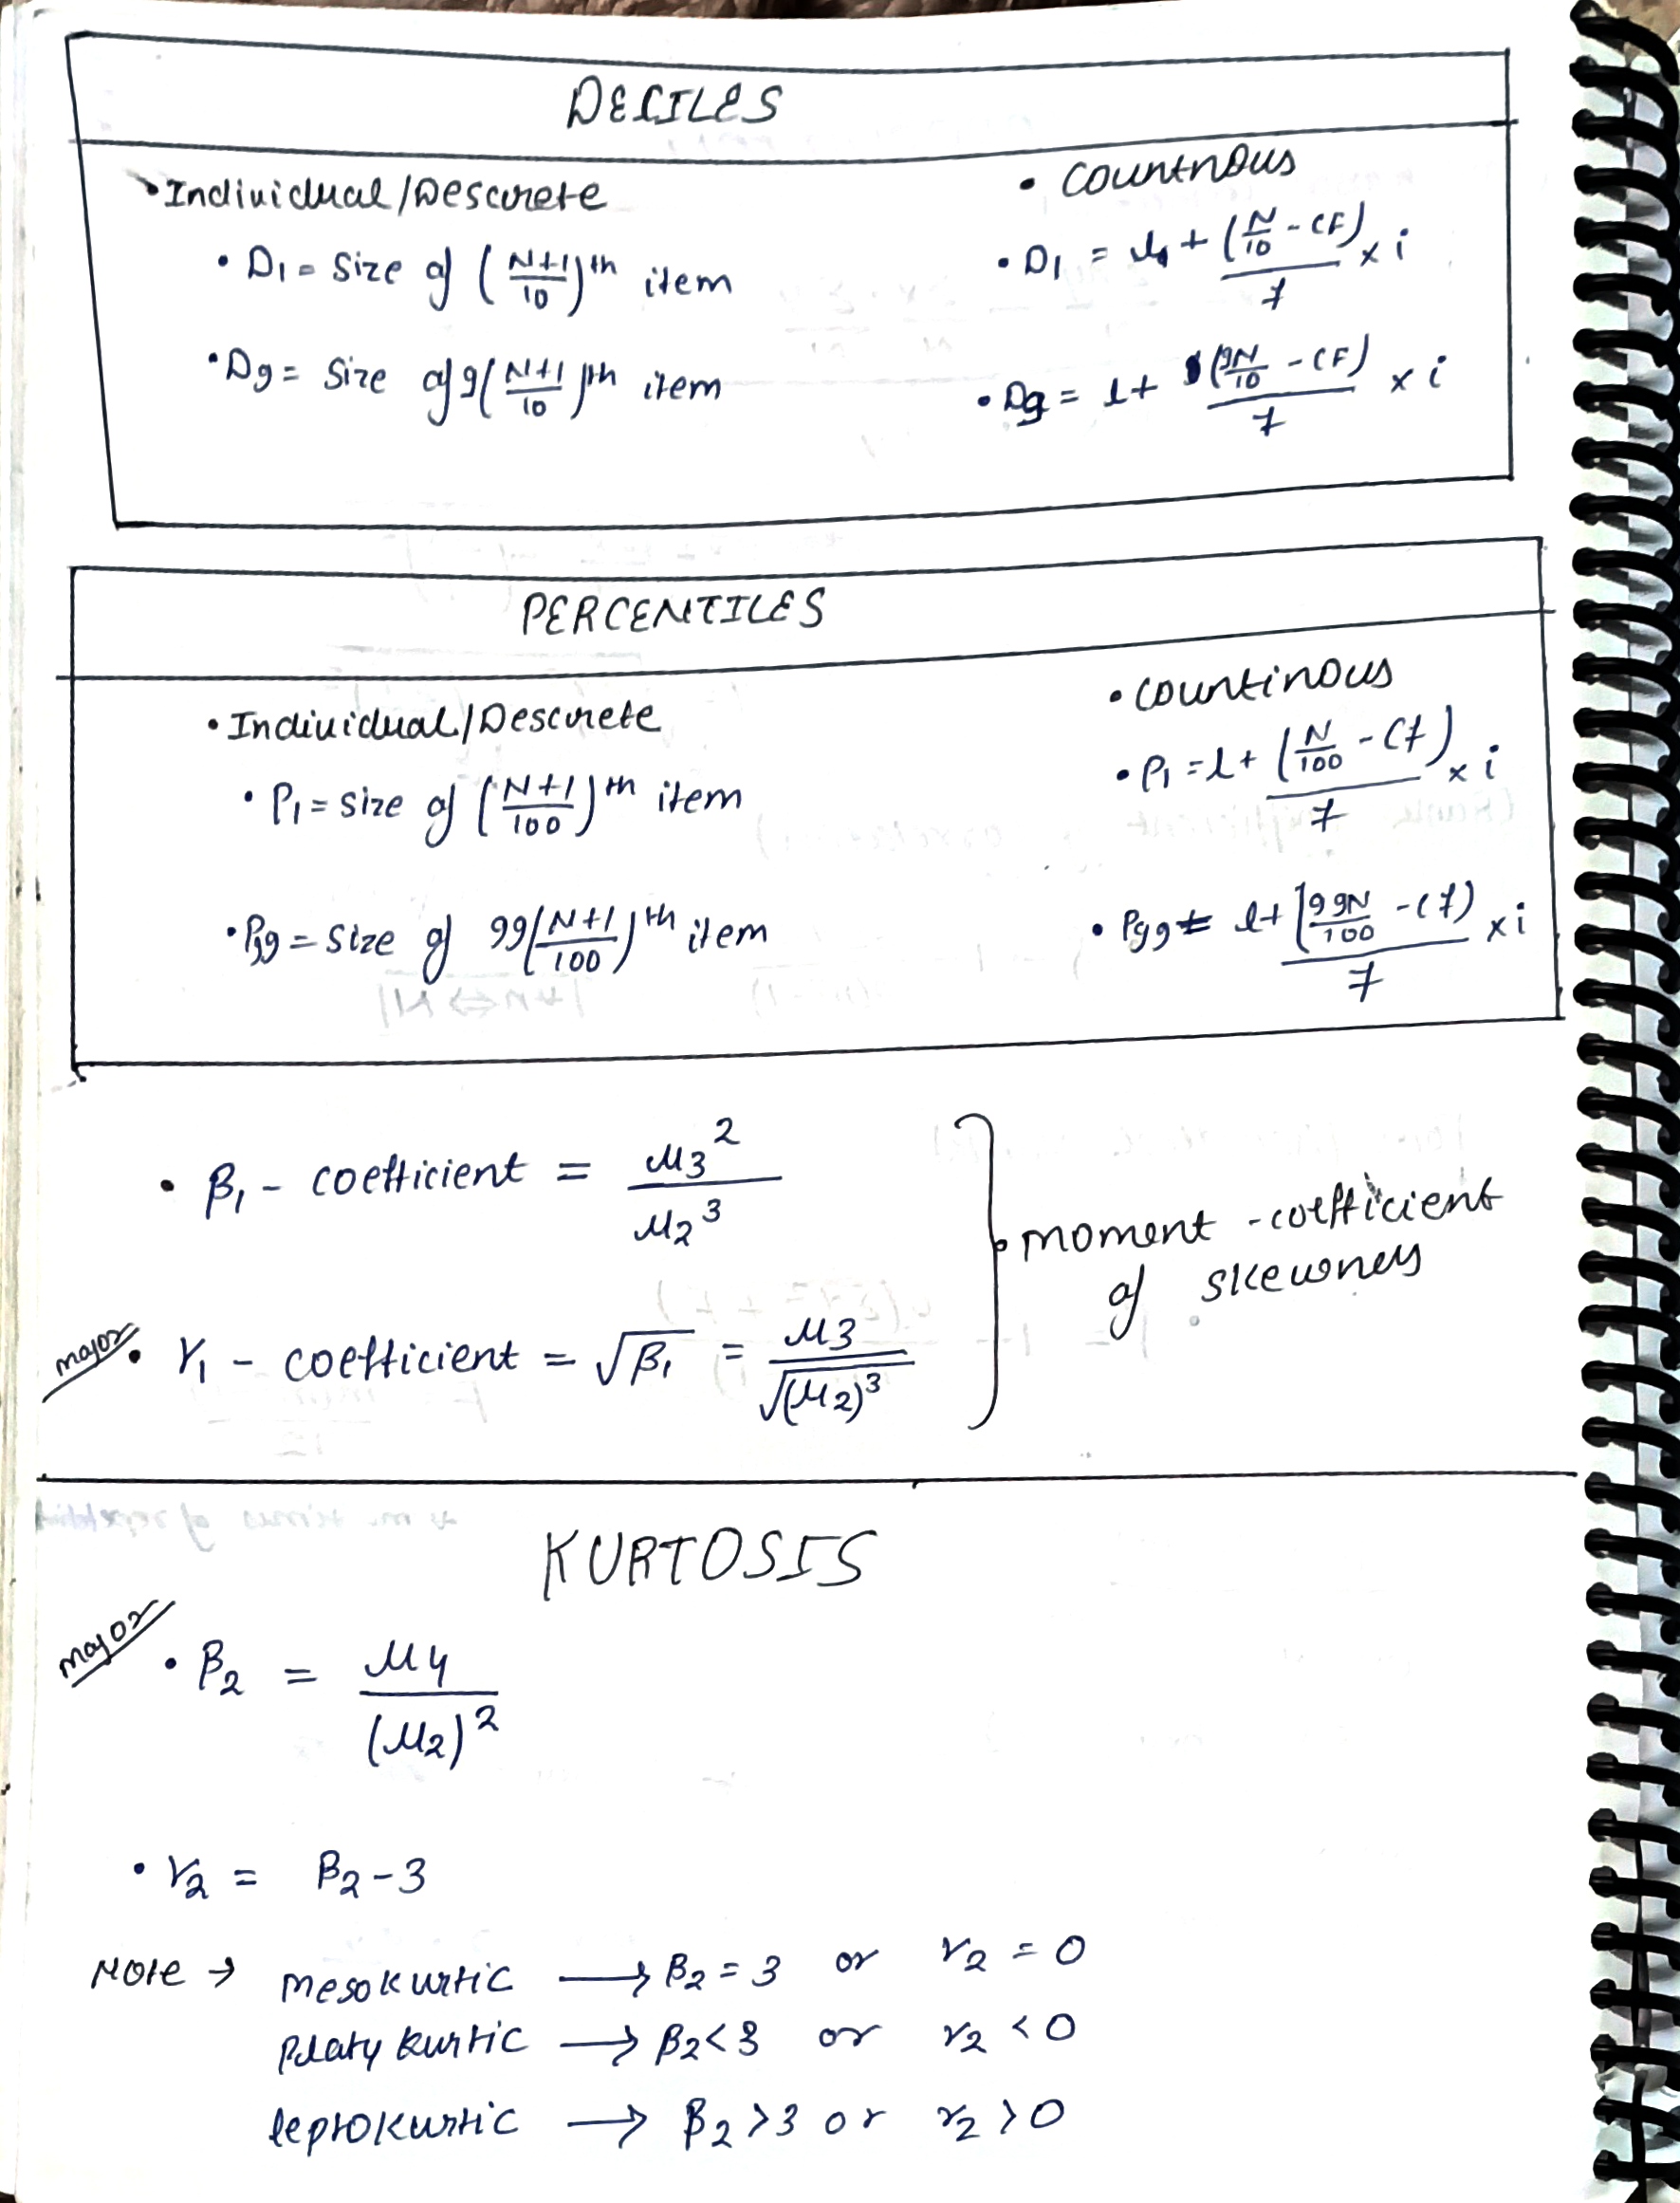 DECILES
• Individual/Descrete
• D₁ = Size of (N+1/10)th item
• D9 = Size of 9(N+1/10)th item
• Countnous
• D₁ = l₁ + (N/10 - CF)/f × i
• D9 = l + (9N/10 - CF)/f × i
PERCENTILES
• Individual/Descrete
• P₁ = size of (N+1/100)th item
• P99 = Size of 99(N+1/100)th item
• Countinous
• P₁ = l + (N/100 - Cf)/f × i
• P99 = l + (99N/100 - Cf)/f × i
• β₁ - coefficient = μ3²/μ2³
major • γ₁ - coefficient = √β₁ = μ3/√(μ2)³
moment - coefficient
of skewness
KURTOSIS
major • β2 = μ4/(μ2)²
• γ2 = β2 - 3
Note → mesokurtic → β2 = 3 or γ2 = 0
Platykurtic → β2 < 3 or γ2 < 0
leptokurtic → β2 > 3 or γ2 > 0